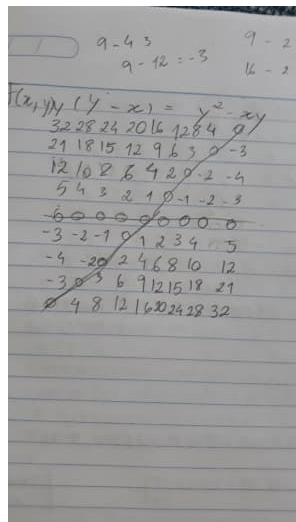 9 - 4 3
9 - 12 = -3
9 - 2
16 - 2
f(x,y) y (y - x) = y² - xy
32 28 24 20 16 12 8 4 0
21 18 15 12 9 6 3 0 -3
12 10 8 6 4 2 0 -2 -4
5 4 3 2 1 0 -1 -2 -3
0 0 0 0 0 0 0 0
-3 -2 -1 0 1 2 3 4 5
-4 -2 0 2 4 6 8 10 12
-3 0 3 6 9 12 15 18 21
0 4 8 12 16 20 24 28 32